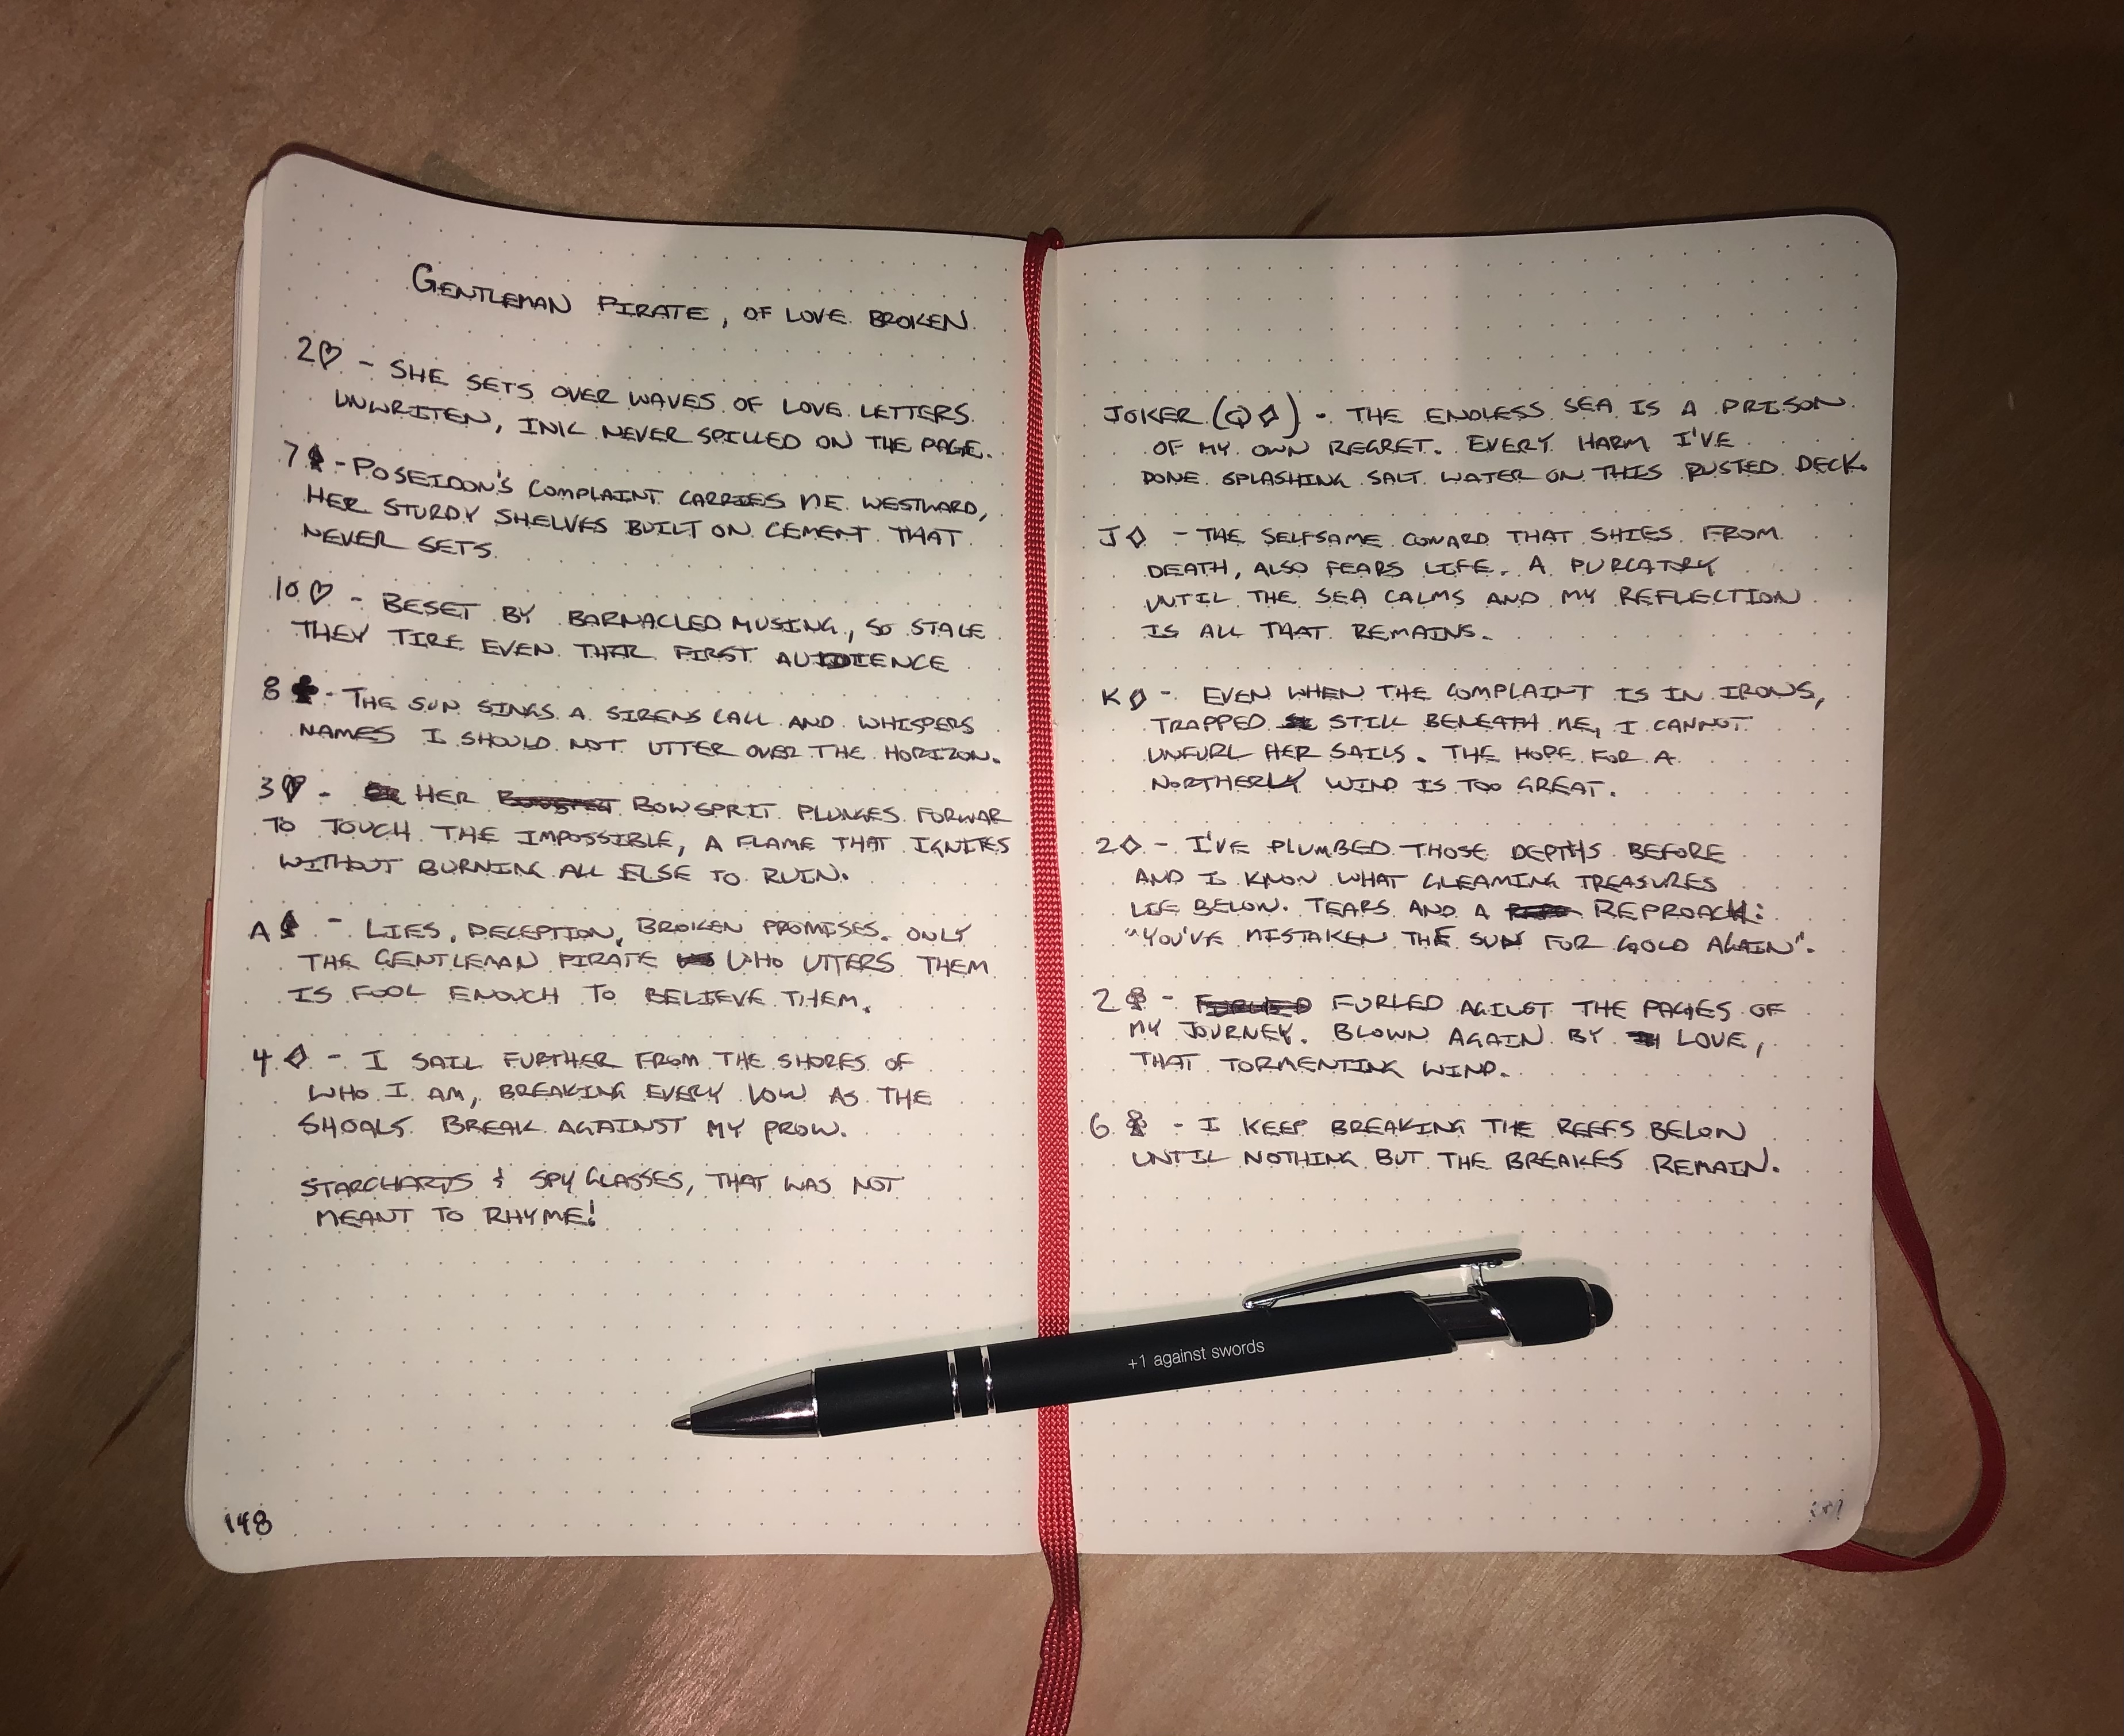 GENTLEMAN PIRATE, OF LOVE BROKEN
2♡ - SHE SETS OVER WAVES OF LOVE LETTERS
UNWRITEN, INK NEVER SPILLED ON THE PAGE.
7♠ - POSEIDON'S COMPLAINT CARRIES ME WESTWARD,
HER STURDY SHELVES BUILT ON CEMENT THAT
NEVER SETS.
10♡ - BESET BY BARNACLED MUSING, SO STALE
THEY TIRE EVEN THEIR FIRST AUDIENCE
8♣ - THE SUN SINGS A SIRENS CALL AND WHISPERS
NAMES I SHOULD NOT UTTER OVER THE HORIZON.
3♡ - HER BOWSPRIT PLUNGES FORWAR
TO TOUCH THE IMPOSSIBLE, A FLAME THAT IGNITES
WITHOUT BURNING ALL ELSE TO RUIN.
A♠ - LIES, DECEPTION, BROKEN PROMISES. ONLY
THE GENTLEMAN PIRATE WHO UTTERS THEM
IS FOOL ENOUGH TO BELIEVE THEM.
4♢ - I SAIL FURTHER FROM THE SHORES OF
WHO I AM, BREAKING EVERY VOW AS THE
SHOALS BREAK AGAINST MY PROW.
STARCHARTS & SPY GLASSES, THAT WAS NOT
MEANT TO RHYME!
148
JOKER (Q♢) - THE ENDLESS SEA IS A PRISON
OF MY OWN REGRET. EVERY HARM I'VE
DONE SPLASHING SALT WATER ON THIS RUSTED DECK.
J♢ - THE SELFSAME COWARD THAT SHIES FROM
DEATH, ALSO FEARS LIFE. A PURGATORY
UNTIL THE SEA CALMS AND MY REFLECTION
IS ALL THAT REMAINS.
K♢ - EVEN WHEN THE COMPLAINT IS IN IRONS,
TRAPPED STILL BENEATH ME, I CANNOT
UNFURL HER SAILS. THE HOPE FOR A
NORTHERLY WIND IS TOO GREAT.
2♢ - I'VE PLUMBED THOSE DEPTHS BEFORE
AND I KNOW WHAT GLEAMING TREASURES
LIE BELOW. TEARS AND A REPROACH:
"YOU'VE MISTAKEN THE SUN FOR GOLD AGAIN".
2♣ - FURLED FURLED THE PAGES OF
MY JOURNEY. BLOWN AGAIN BY LOVE,
THAT TORMENTING WIND.
6♣ - I KEEP BREAKING THE REEFS BELOW
UNTIL NOTHING BUT THE BREAKES REMAIN.
+1 against swords